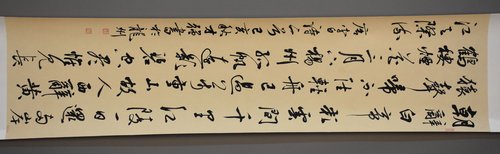 朝辭白帝彩雲間千里江陵一日還兩岸
猿聲啼不住輕舟已過萬重山故人西辭黃
鶴樓煙花三月下揚州孤帆遠影碧空盡惟見長
江天際流 唐李白詩二首 己亥秋 書於龍州